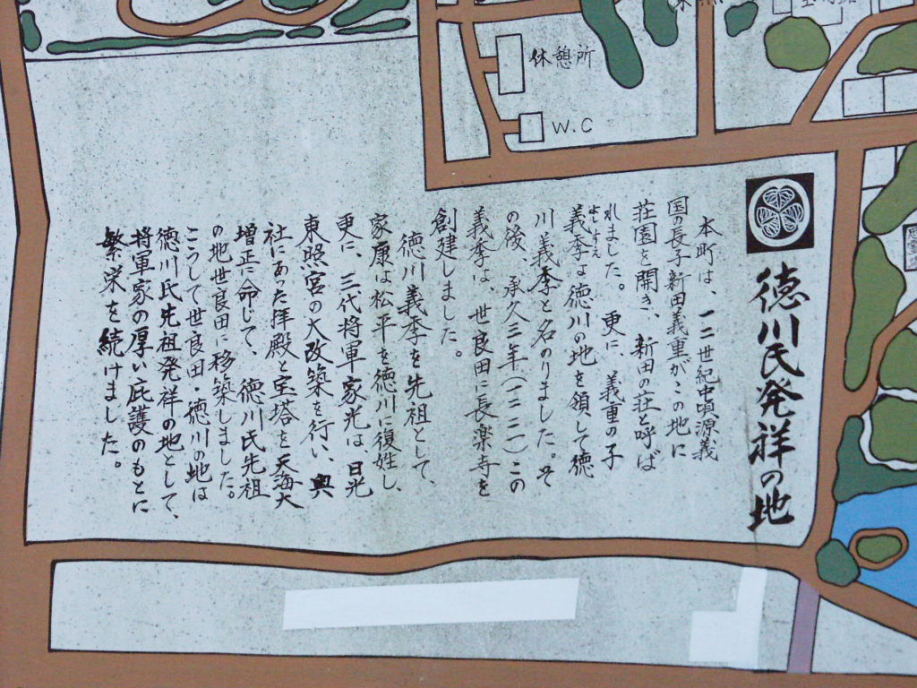 休憩所
W.C
徳川氏発祥の地
本町は、一二世紀中頃源義
国の長子新田義重がこの地に
荘園を開き、新田の荘と呼ば
れました。更に、義重の子
義季は徳川の地を領して徳
よしすえ
川義季と名のりました。そ
の後、承久三年（一二二一）この
義季は、世良田に長楽寺を
創建しました。
徳川義季を先祖として、
家康は松平を徳川に復姓し、
更に、三代将軍家光は、日光
東照宮の大改築を行い、奥
社にあった拝殿と宝塔を天海大
増正に命じて、徳川氏先祖
の地世良田に移築しました。
こうして世良田・徳川の地は
徳川氏先祖発祥の地として、
将軍家の厚い庇護のもとに
繁栄を続けました。